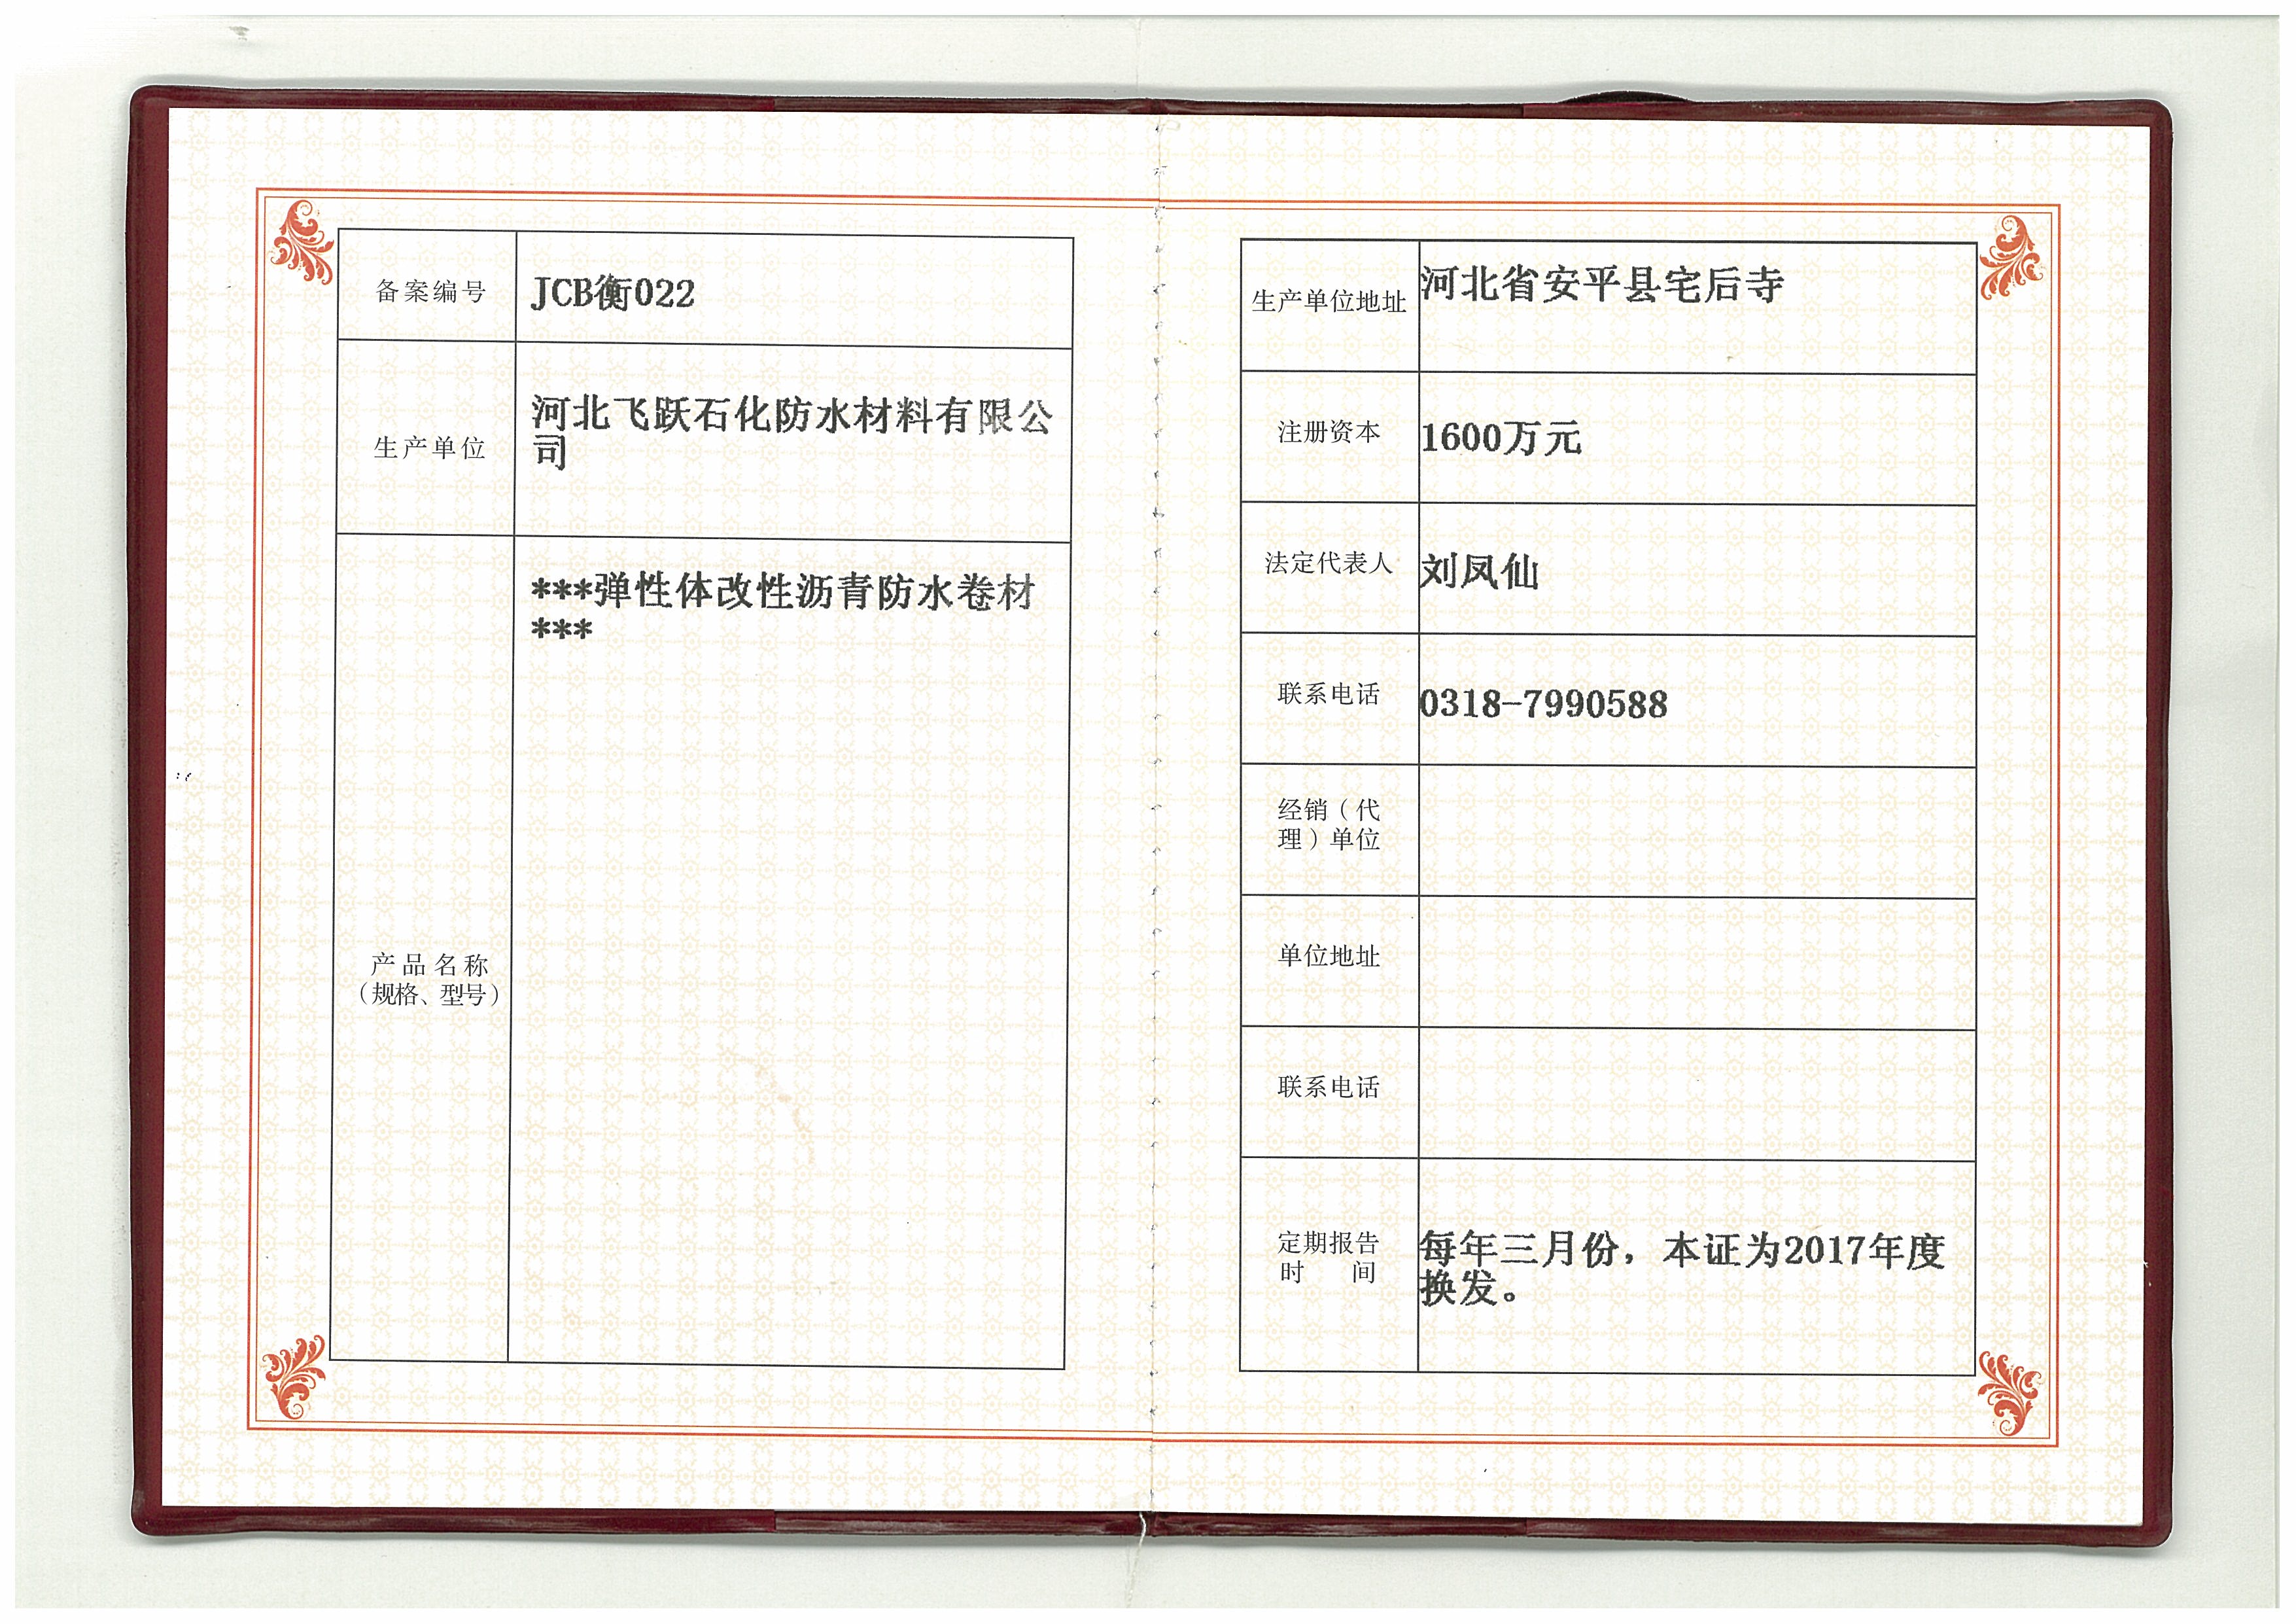 备案编号 JCB衡022
生产单位 河北飞跃石化防水材料有限公
司
产品名称
（规格、型号）
***弹性体改性沥青防水卷材
***
生产单位地址 河北省安平县宅后寺
注册资本 1600万元
法定代表人 刘凤仙
联系电话 0318-7990588
经销（代
理）单位
单位地址
联系电话
定期报告
时 间
每年三月份，本证为2017年度
换发。